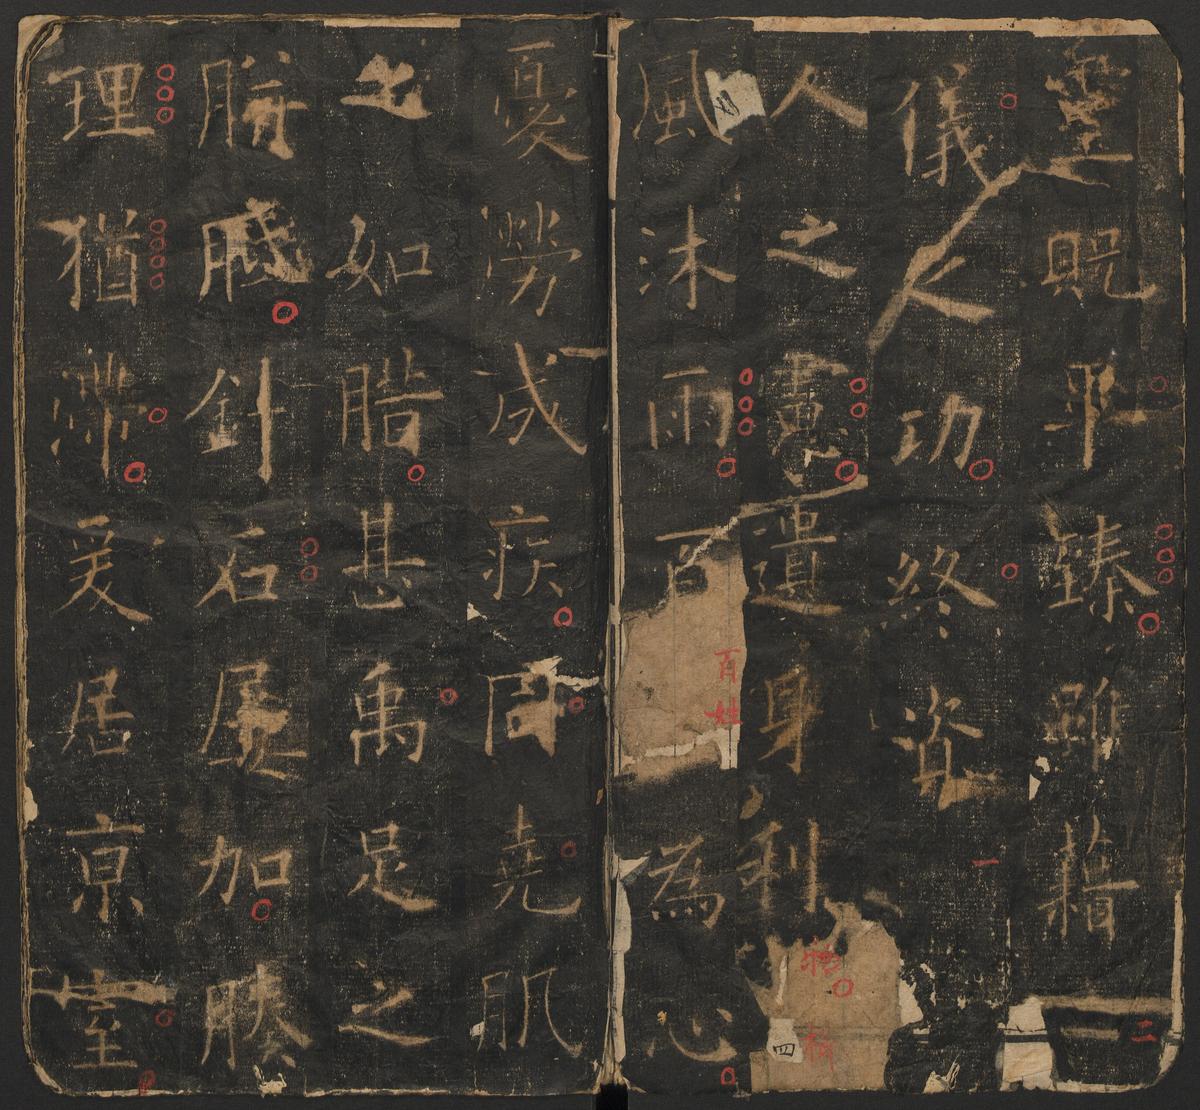 靈貺畢臻雖藉二二
儀之功終資一
人之慮遺身利物櫛
四
風沐雨百百姓為心
憂勞成疾同堯肌
之如腊甚禹足之
胼胝針石屢加腠
理猶滯爰居京室